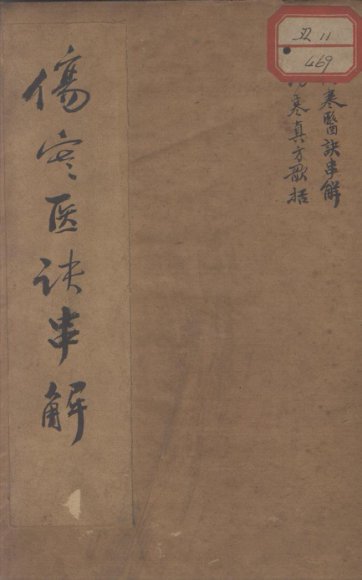 32 11
469
寒醫訣串解
寒真方歌括
傷寒医訣串解